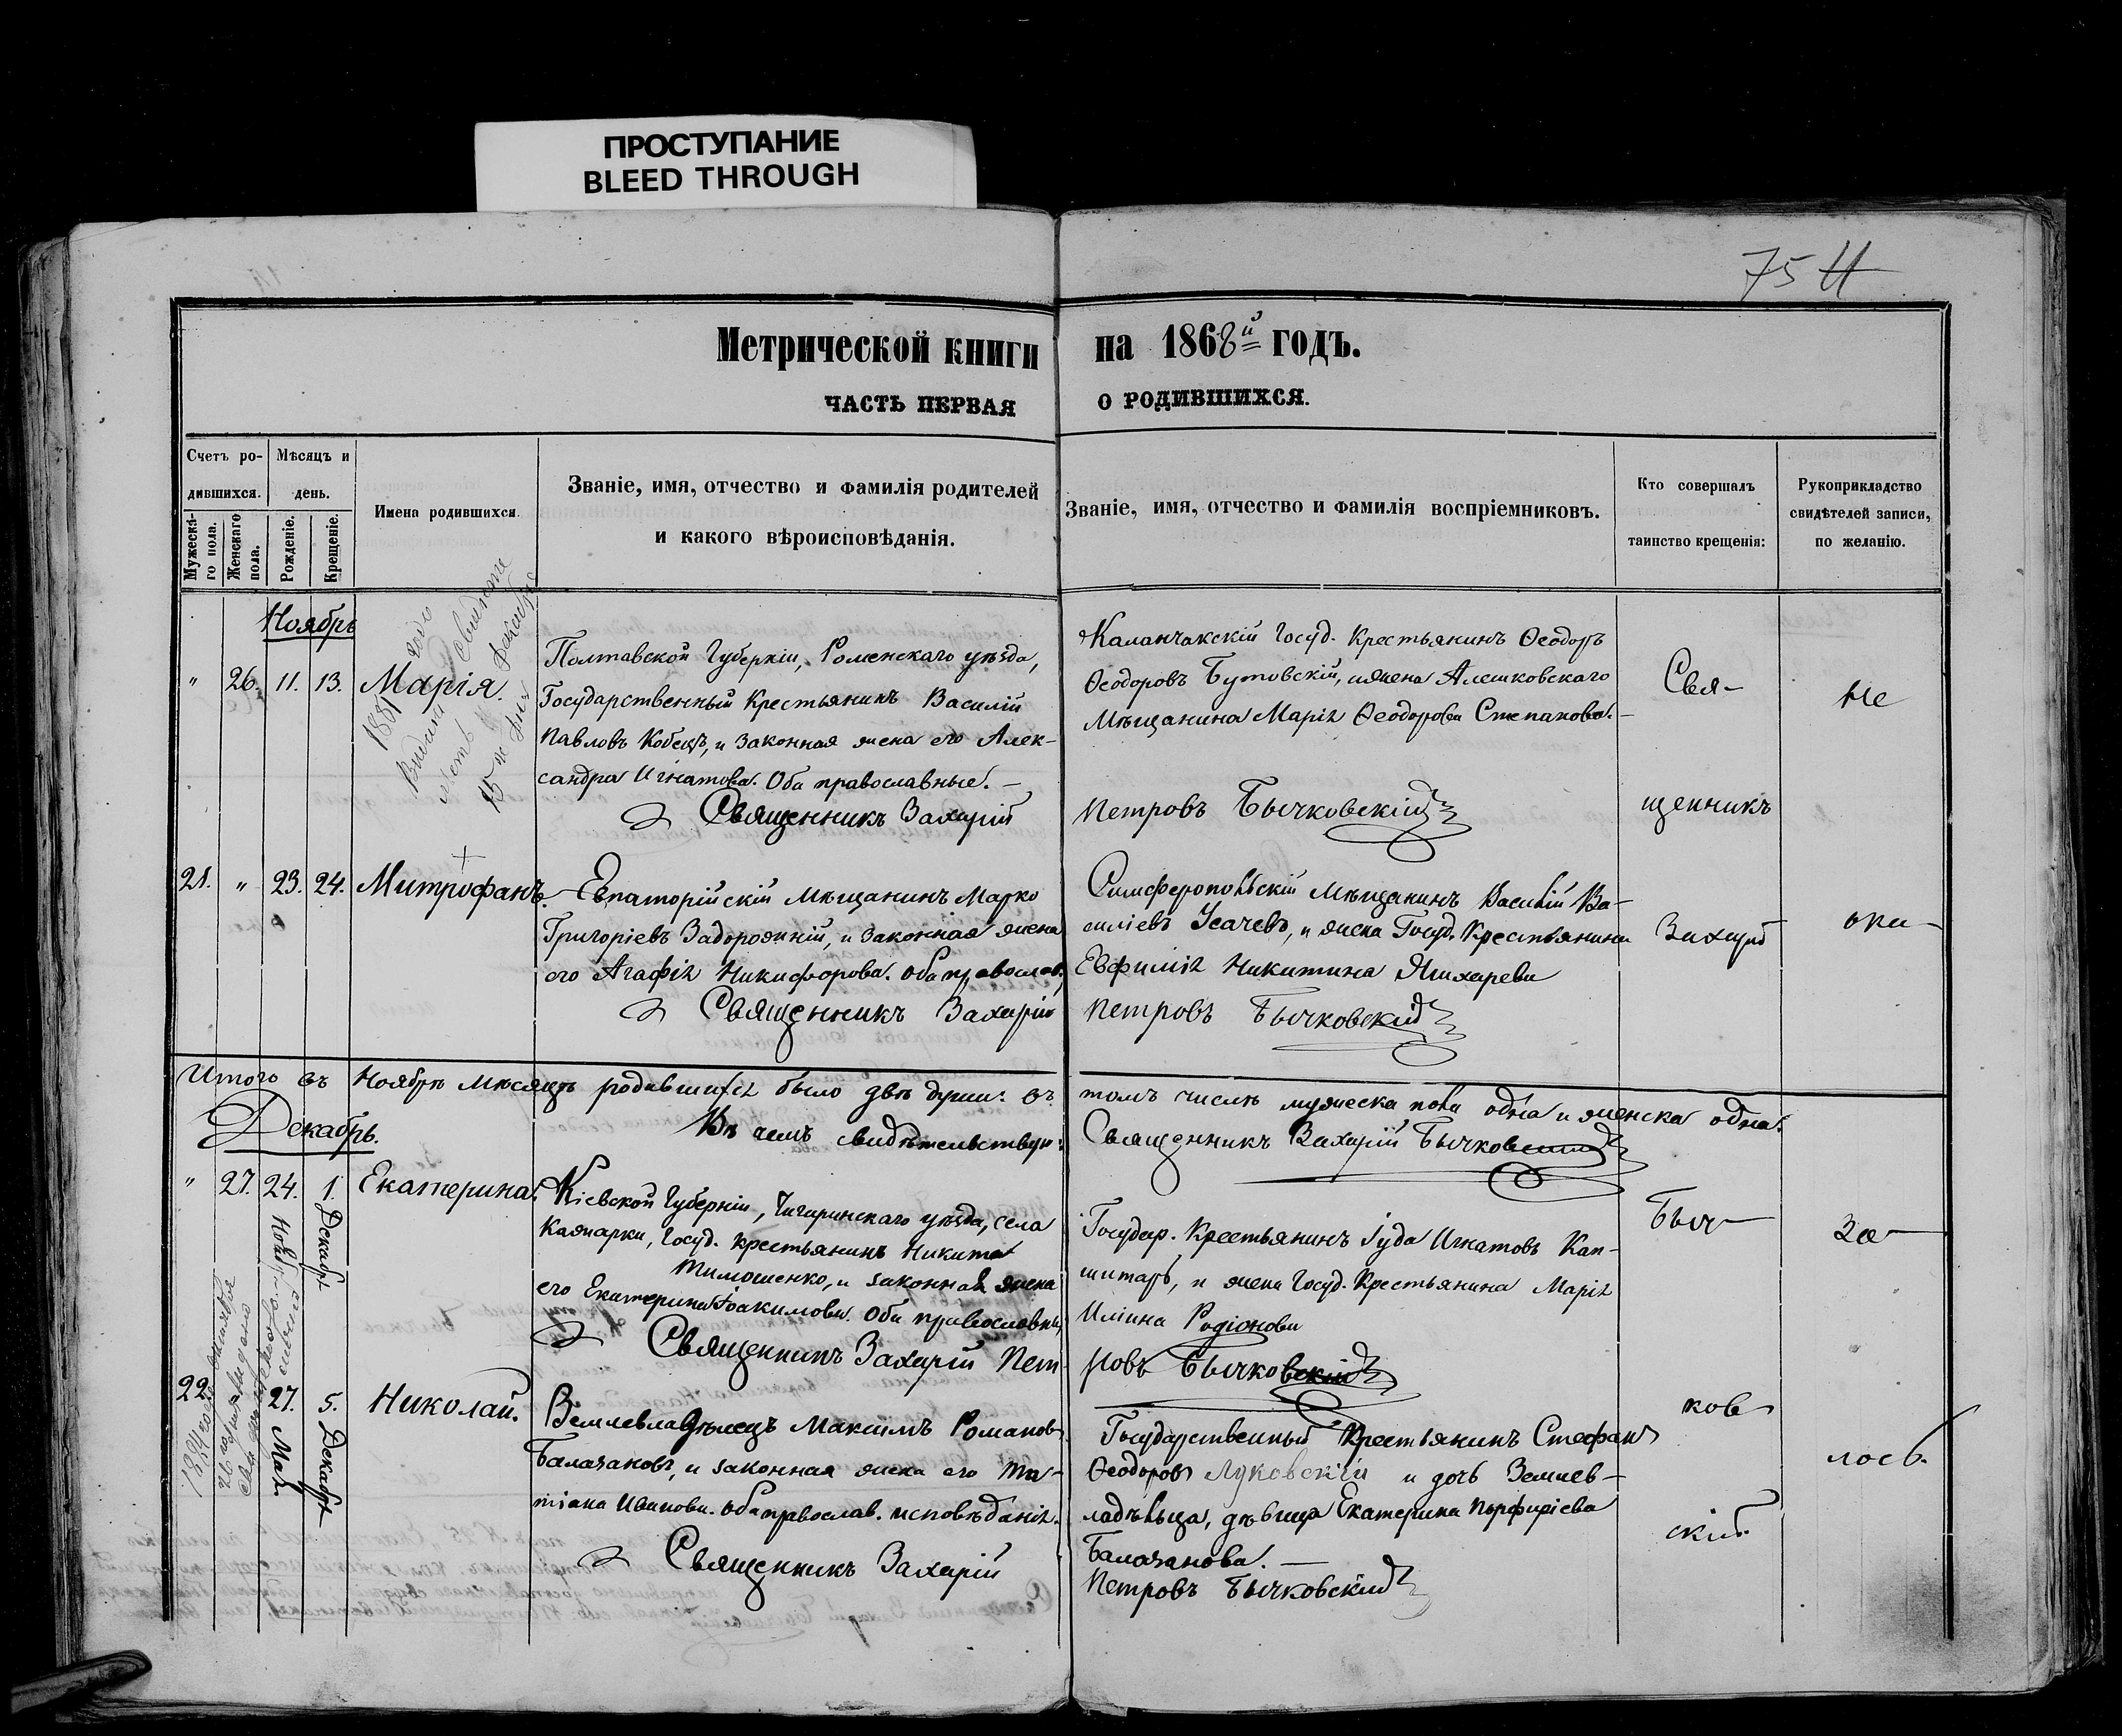 ПРОСТУПАНИЕ
BLEED THROUGH
75
Метрической книги на 1868й годъ.
ЧАСТЬ ПЕРВАЯ О РОДИВШИХСЯ.
Счетъ ро-
дившихся.
Мужеска-
го пола.
Женскаго
пола.
Мѣсяцъ и
день.
Рожденіе.
Крещеніе.
Имена родившихся.
Званіе, имя, отчество и фамилія родителей
и какого вѣроисповѣданія.
Званіе, имя, отчество и фамилія воспріемниковъ.
Кто совершалъ
таинство крещенія:
Рукоприкладство
свидѣтелей записи,
по желанію.
Ноябрь
" 26. 11. 13. Марія.
Полтавской Губерніи, Роменскаго уѣзда,
Государственный Крестьянинъ Василій
Павловъ Кобецъ, и законная жена его Алек-
сандра Игнатова. Оба православные. —
Каланчакскій Госуд. Крестьянинъ Ѳеодоръ
Ѳеодоровъ Бутовскій, и жена Алешковскаго
Мѣщанина Марія Ѳеодорова Степанова. —
Священникъ Захарій Петровъ Бычковскій
Свя-
щенникъ
Не
21. " 23. 24. Митрофанъ.
Евпаторійскій Мѣщанинъ Марко
Григоріевъ Задорожній, и законная жена
его Агафія Никифорова. Оба православ.
Симферопольскій Мѣщанинъ Василій Ва-
силіевъ Усачевъ, и жена Госуд. Крестьянина
Евфимія Никитина
Священникъ Захарій Петровъ Бычковскій
Захарій
ока-
Итого въ Ноябрѣ Мѣсяцѣ родившихся было двѣ души: въ томъ числѣ мужеска пола одна и женска одна.
Въ чемъ свидѣтельствую: Священникъ Захарій Бычковскій
Декабрь.
" 27. 24. Ноября 1. Декабр. Екатерина.
Кіевской Губерніи, Чигиринскаго уѣзда, села
Каэнарки, Госуд. крестьянинъ Никита
Тимошенко, и законная жена
его Екатерина Іоакимова. Оба православн.
Государ. Крестьянинъ Іуда Игнатовъ Кап-
шитарь, и жена Госуд. Крестьянина Марія
Иліина Родіонова
Священникъ Захарій Пет-
ровъ Бычковскій
Быч-
ков
за-
22. 27. Мая. 5. Декабр. Николай.
Землевладѣлецъ Максимъ Романовъ
Балазановъ, и законная жена его Та-
тіана Иванова. Оба православ. исповѣданія.
Государственный Крестьянинъ Стефанъ
Ѳеодоровъ Луковскій и дочь Землев-
ладѣльца, дѣвица Екатерина Порфиріева
Балазанова. —
Священникъ Захарій Петровъ Бычковскій
скій.
лось.